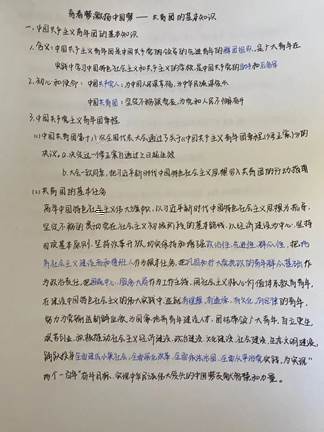 青春梦激扬中国梦 —— 共青团的基本知识
一、中国共产主义青年团的基本知识
1. 含义：中国共产主义青年团是中国共产党领导的先进青年的群团组织，是广大青年在
实践中学习中国特色社会主义和共产主义的学校，是中国共产党的助手和后备军
2. 初心和使命：中国共产党人：为中国人民谋幸福，为中华民族谋复兴
中国共青团：坚定不移跟党走，为党和人民不懈奋斗
3. 中国共产主义青年团章程
(1) 中国共青团第十八次全国代表大会通过了关于《中国共产主义青年团章程(修正案)》的
决议。a. 决定这一修正案自通过之日起生效
b. 大会一致同意，把习近平新时代中国特色社会主义思想写入共青团的行动指南
(2) 共青团的基本任务
高举中国特色社会主义伟大旗帜，以习近平新时代中国特色社会主义思想为指导，
坚定不移的贯彻党在社会主义初级阶段的基本路线，以经济建设为中心，坚持
四项基本原则，坚持改革开放，切实保持和增强政治性、先进性、群众性，把培
养社会主义建设者和接班人作为根本任务，把巩固和扩大党执政的青年群众基础作
为政治责任，把围绕中心、服务大局作为工作主线，
在建设中国特色社会主义的伟大实践中，造就有理想、有道德、有文化、有纪律的青年，
努力为党输送新鲜血液，为国家培养青年建设人才，团结带领广大青年，自力更生，
艰苦创业，积极推动社会主义经济建设、政治建设、文化建设、社会建设、生态文明建设，
全面建成小康社会、全面深化改革、全面依法治国、全面从严治党实践，为实现"
两个一百年"奋斗目标、实现中华民族伟大复兴的中国梦贡献智慧和力量。